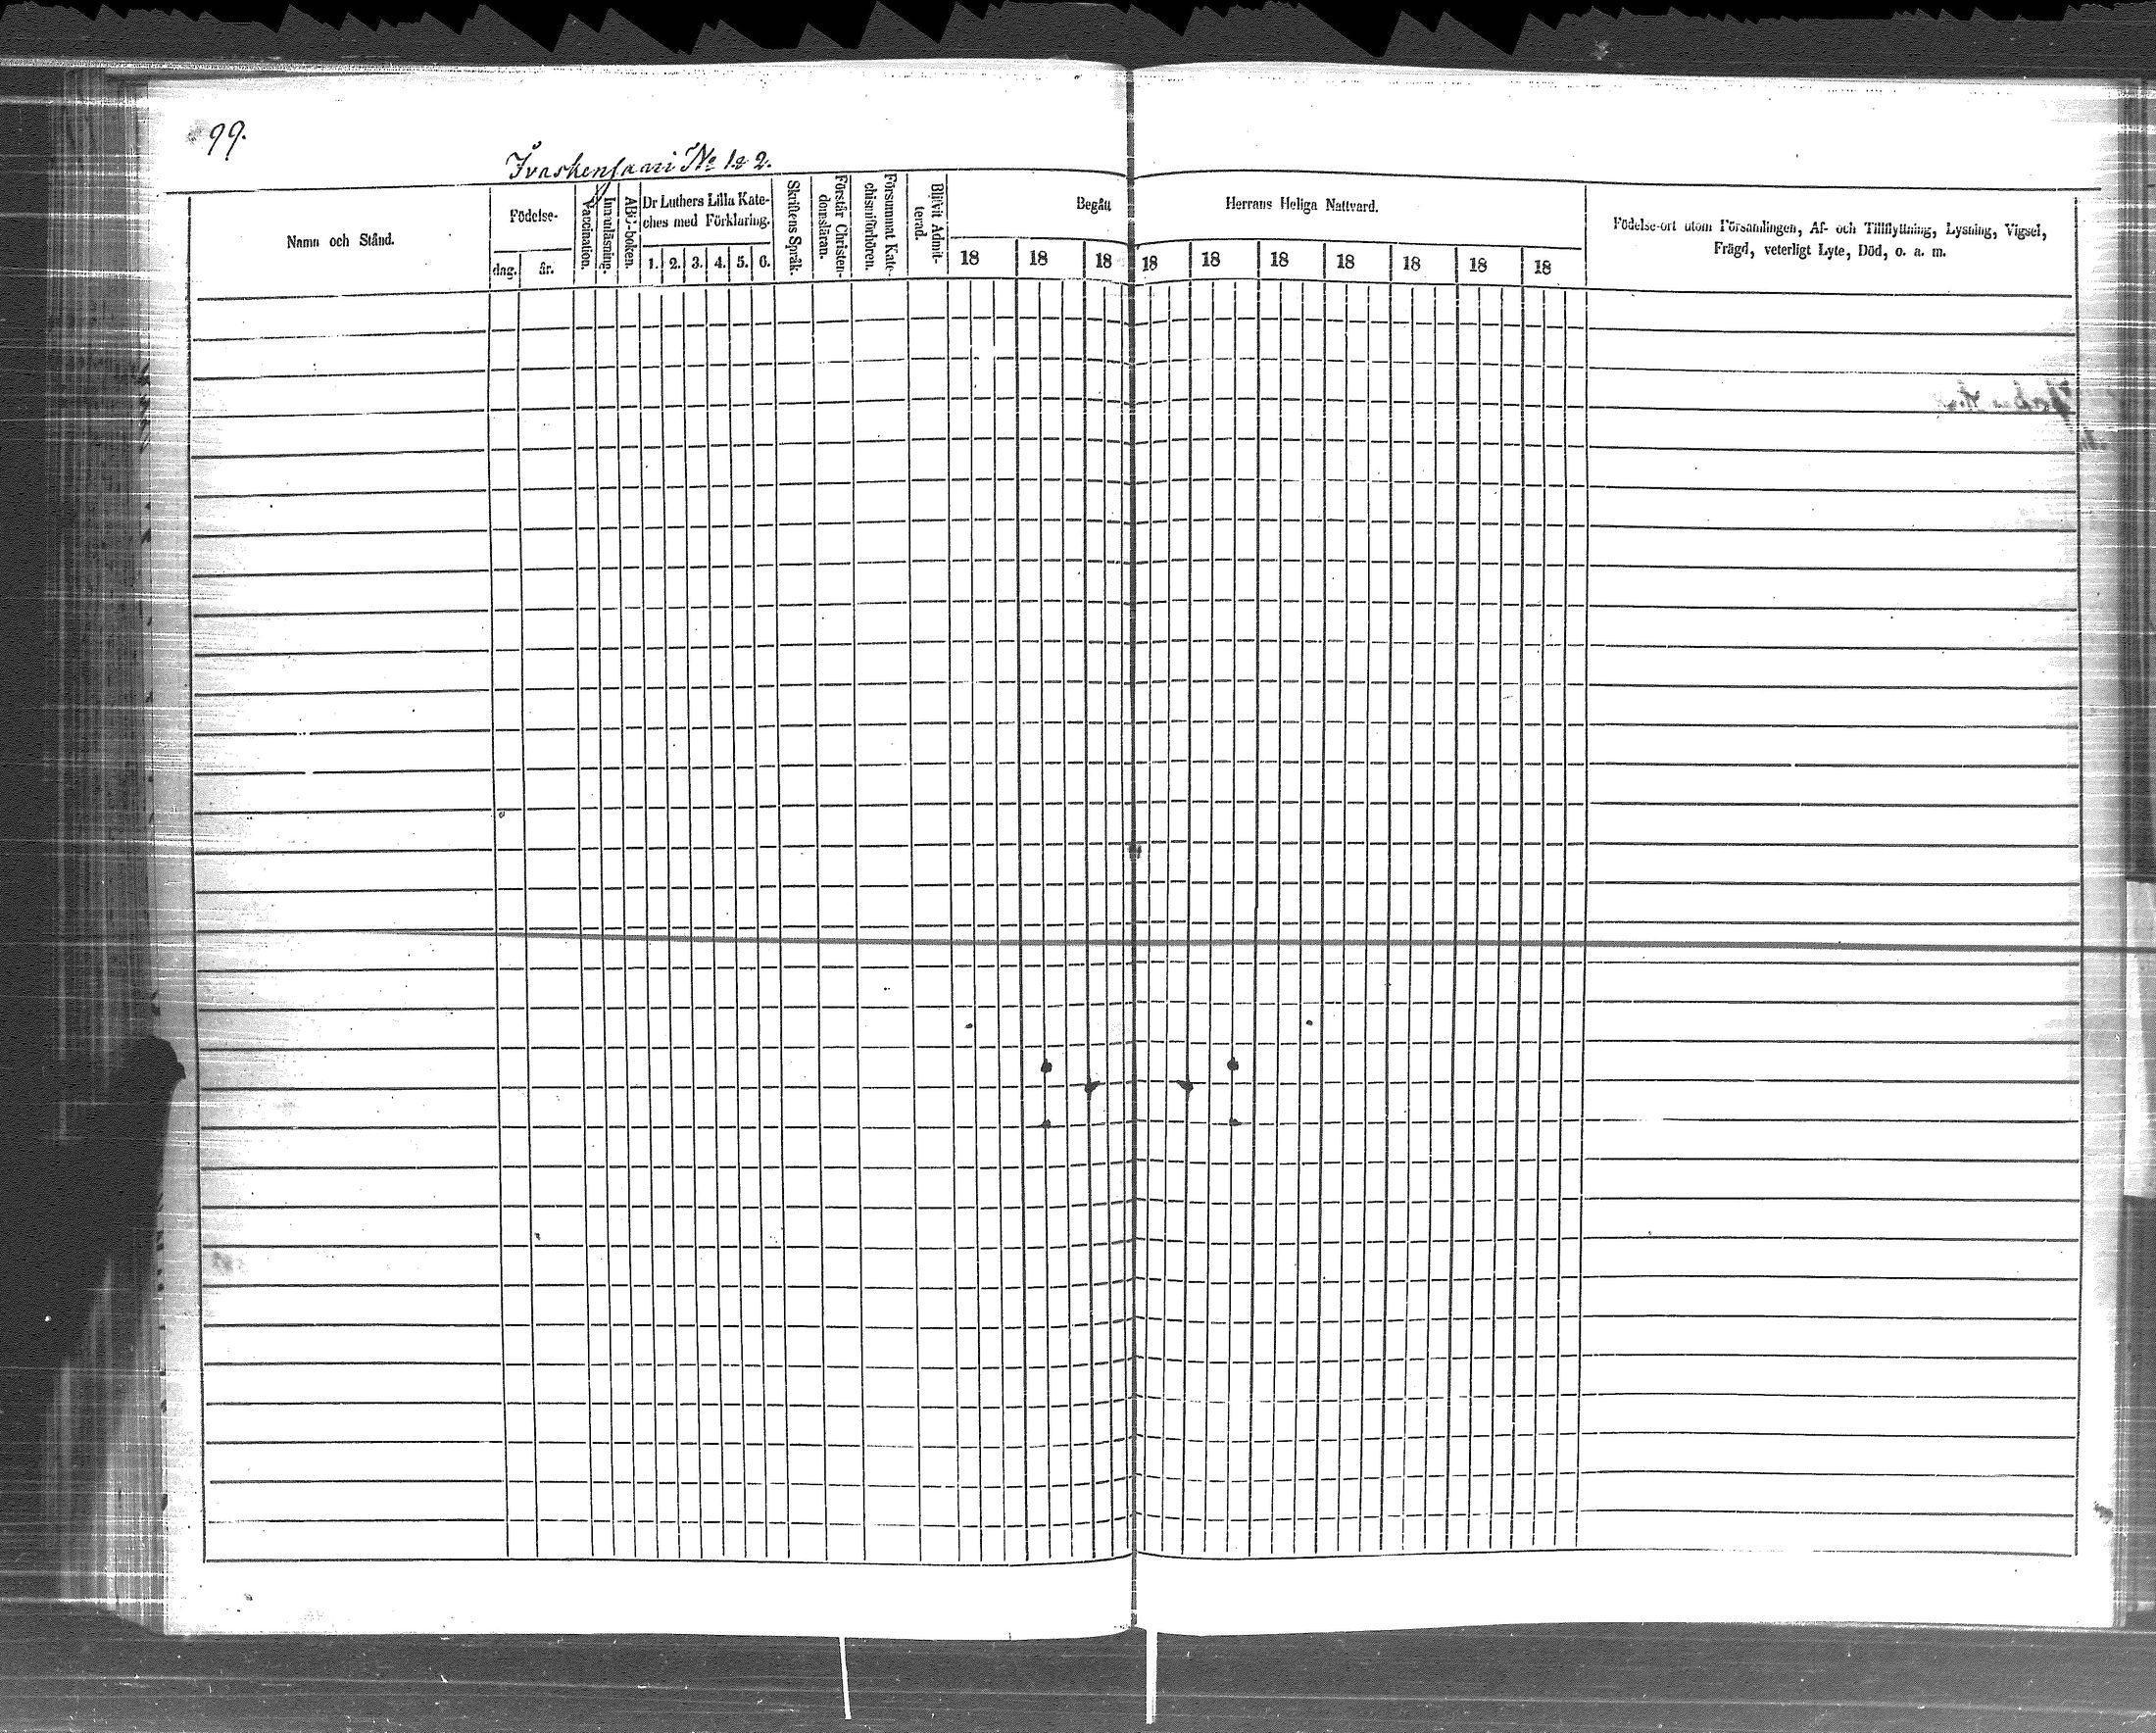 99.
Ivaskensaari No 1. & 2.
Namn och Stånd.
Födelse-
dag.
år.
Vaccination.
Innanläsning.
ABC-boken.
Dr Luthers Lilla Kate-
ches med Förklaring.
1. 2. 3. 4. 5. 6.
Skriftens Språk.
Förstår Christen-
domsläran.
Försummat Kate-
chismiförhören.
Blifvit Admit-
terad.
Begått Herrans Heliga Nattvard.
18 18 18 18 18 18 18 18 18 18
Födelse-ort utom Församlingen, Af- och Tillflyttning, Lysning, Vigsel,
Frägd, veterligt Lyte, Död, o. a. m.